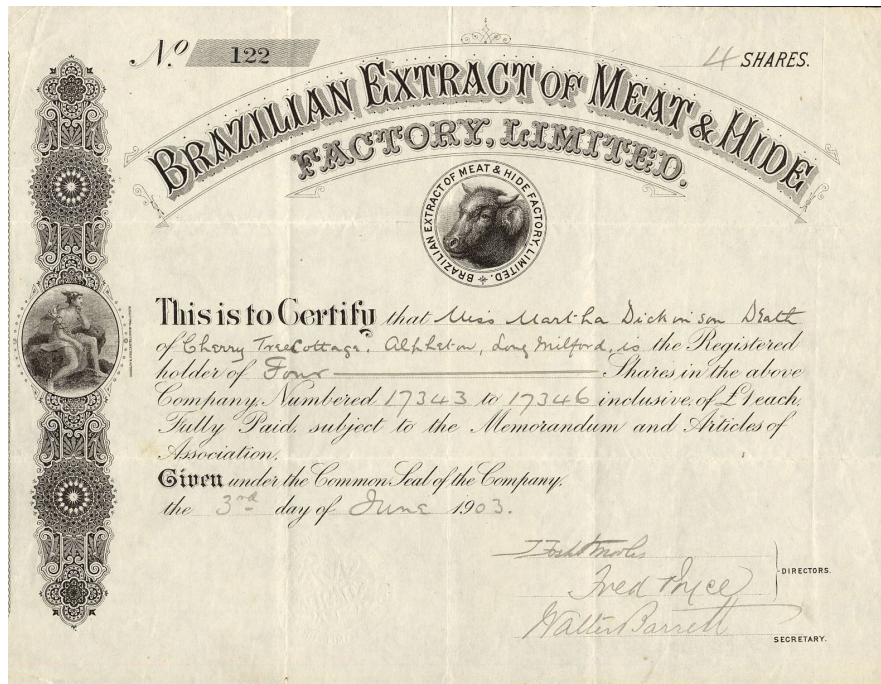 No. 122
4 SHARES.
BRAZILIAN EXTRACT OF MEAT & HIDE
FACTORY, LIMITED.
BRAZILIAN EXTRACT OF MEAT & HIDE FACTORY, LIMITED.
This is to Certify that Miss Martha Dickinson Death
of Cherry Tree Cottage, Alpheton, Long Milford, is the Registered
holder of Four Shares, in the above
Company, Numbered 17343 to 17346 inclusive, of £1 each,
Fully Paid, subject to the Memorandum and Articles of
Association.
Given under the Common Seal of the Company,
the 3rd day of June 1903.
Fred
DIRECTORS.
Walter Barrett
SECRETARY.